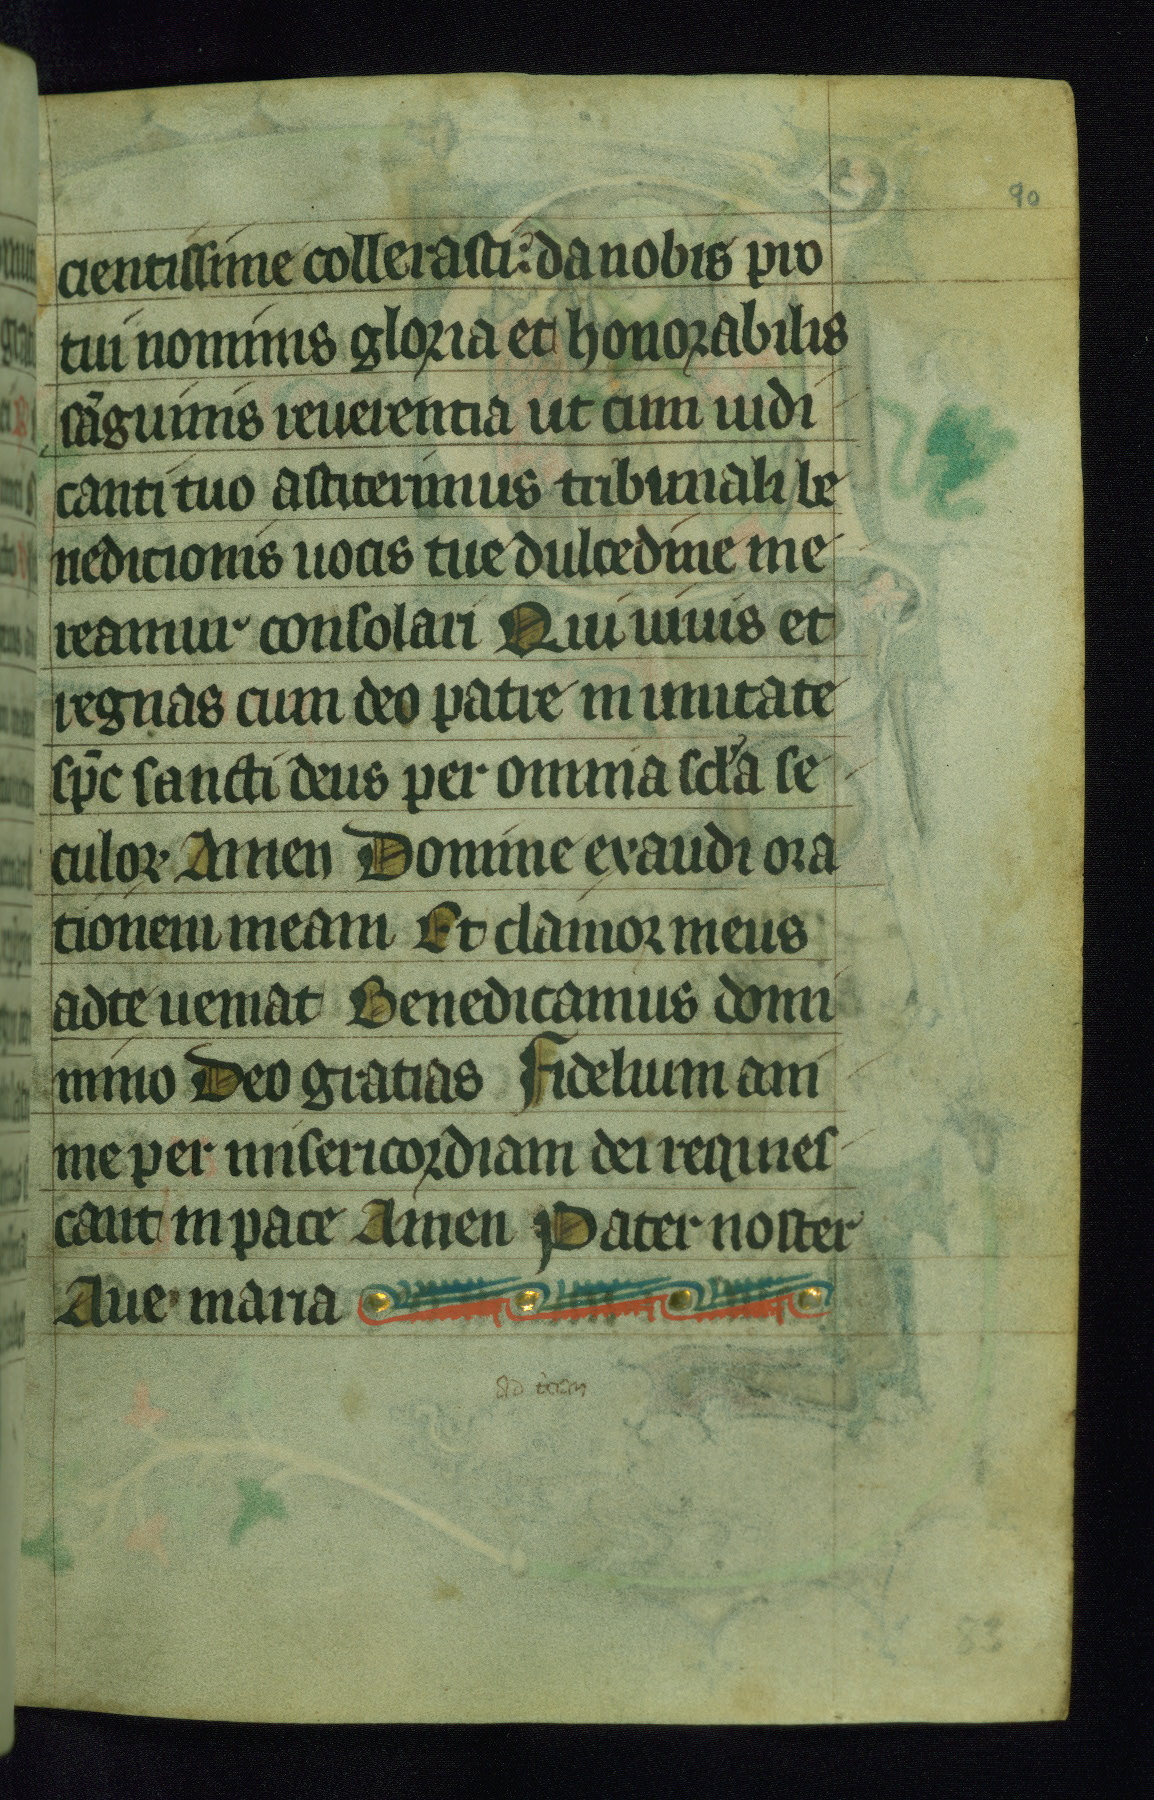 90
cientissime collerasti: da nobis pro
tui nominis gloria et honorabilis
sāguinis reuerentia ut cum iudi
canti tuo astiterimus tribunali be
nedictionis uocis tue dulcedine me
reamur consolari Qui uiuis et
regnas cum deo patre in unitate
sp̄c sancti deus per omnia scl'a se
culor Amen Domine exaudi ora
tionem meam Et clamor meus
ad te ueniat Benedicamus domi
mino Deo gratias Fidelium ani
me per misericordiam dei requies
cant in pace Amen Pater noster
Aue maria
83